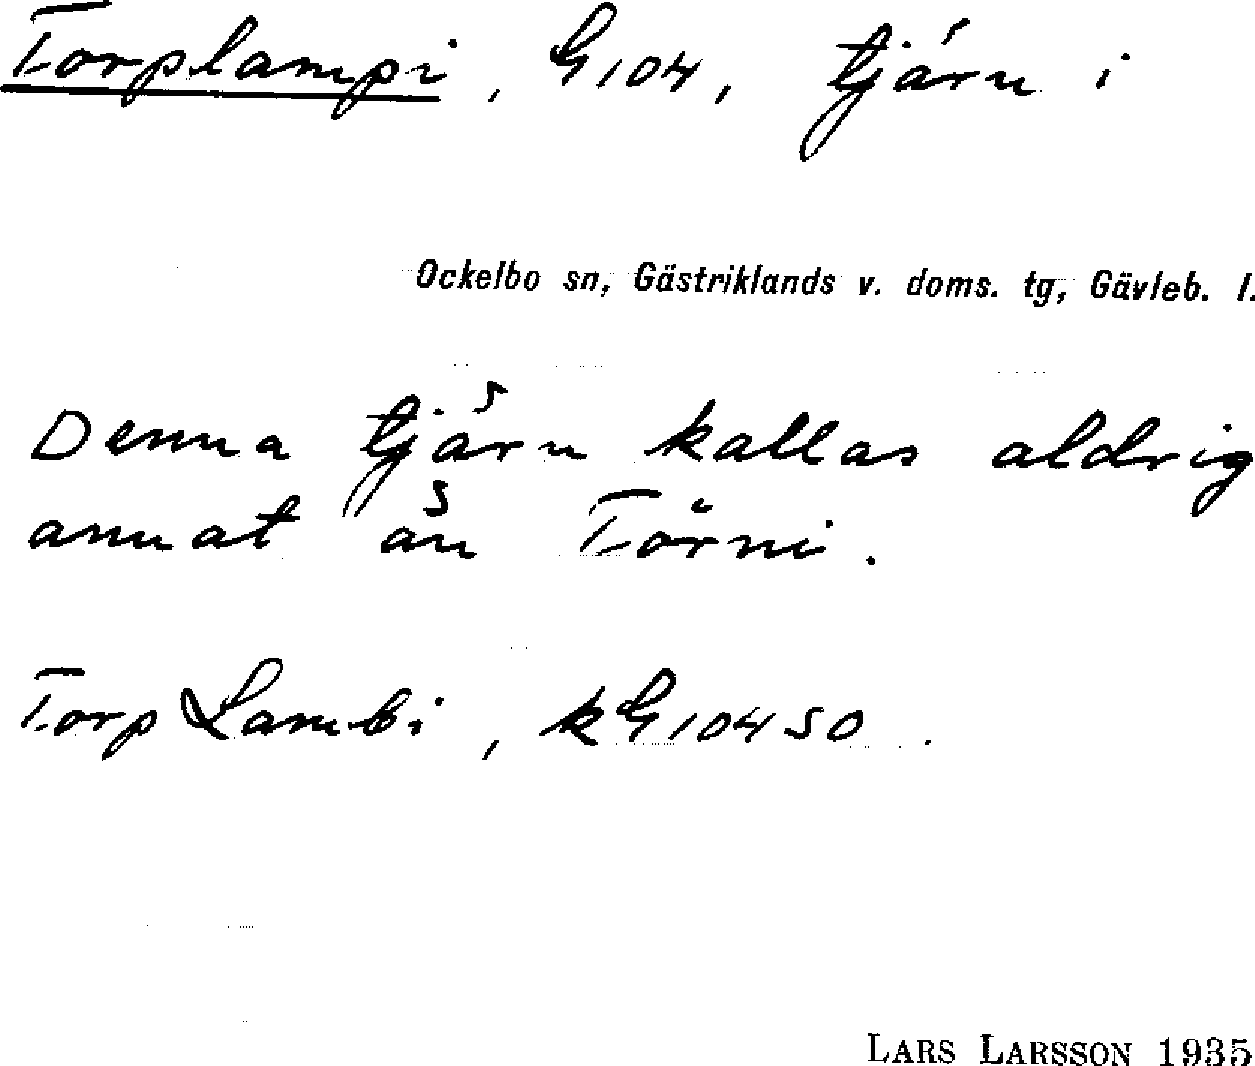 Torplampi, G104, tjärn i
Ockelbo sn, Gästriklands v. doms. tg, Gävleb. l.
Denna tjärn kallas aldrig
annat än Törni.
Torp Lambi, kG104 SO.
LARS LARSSON 1935